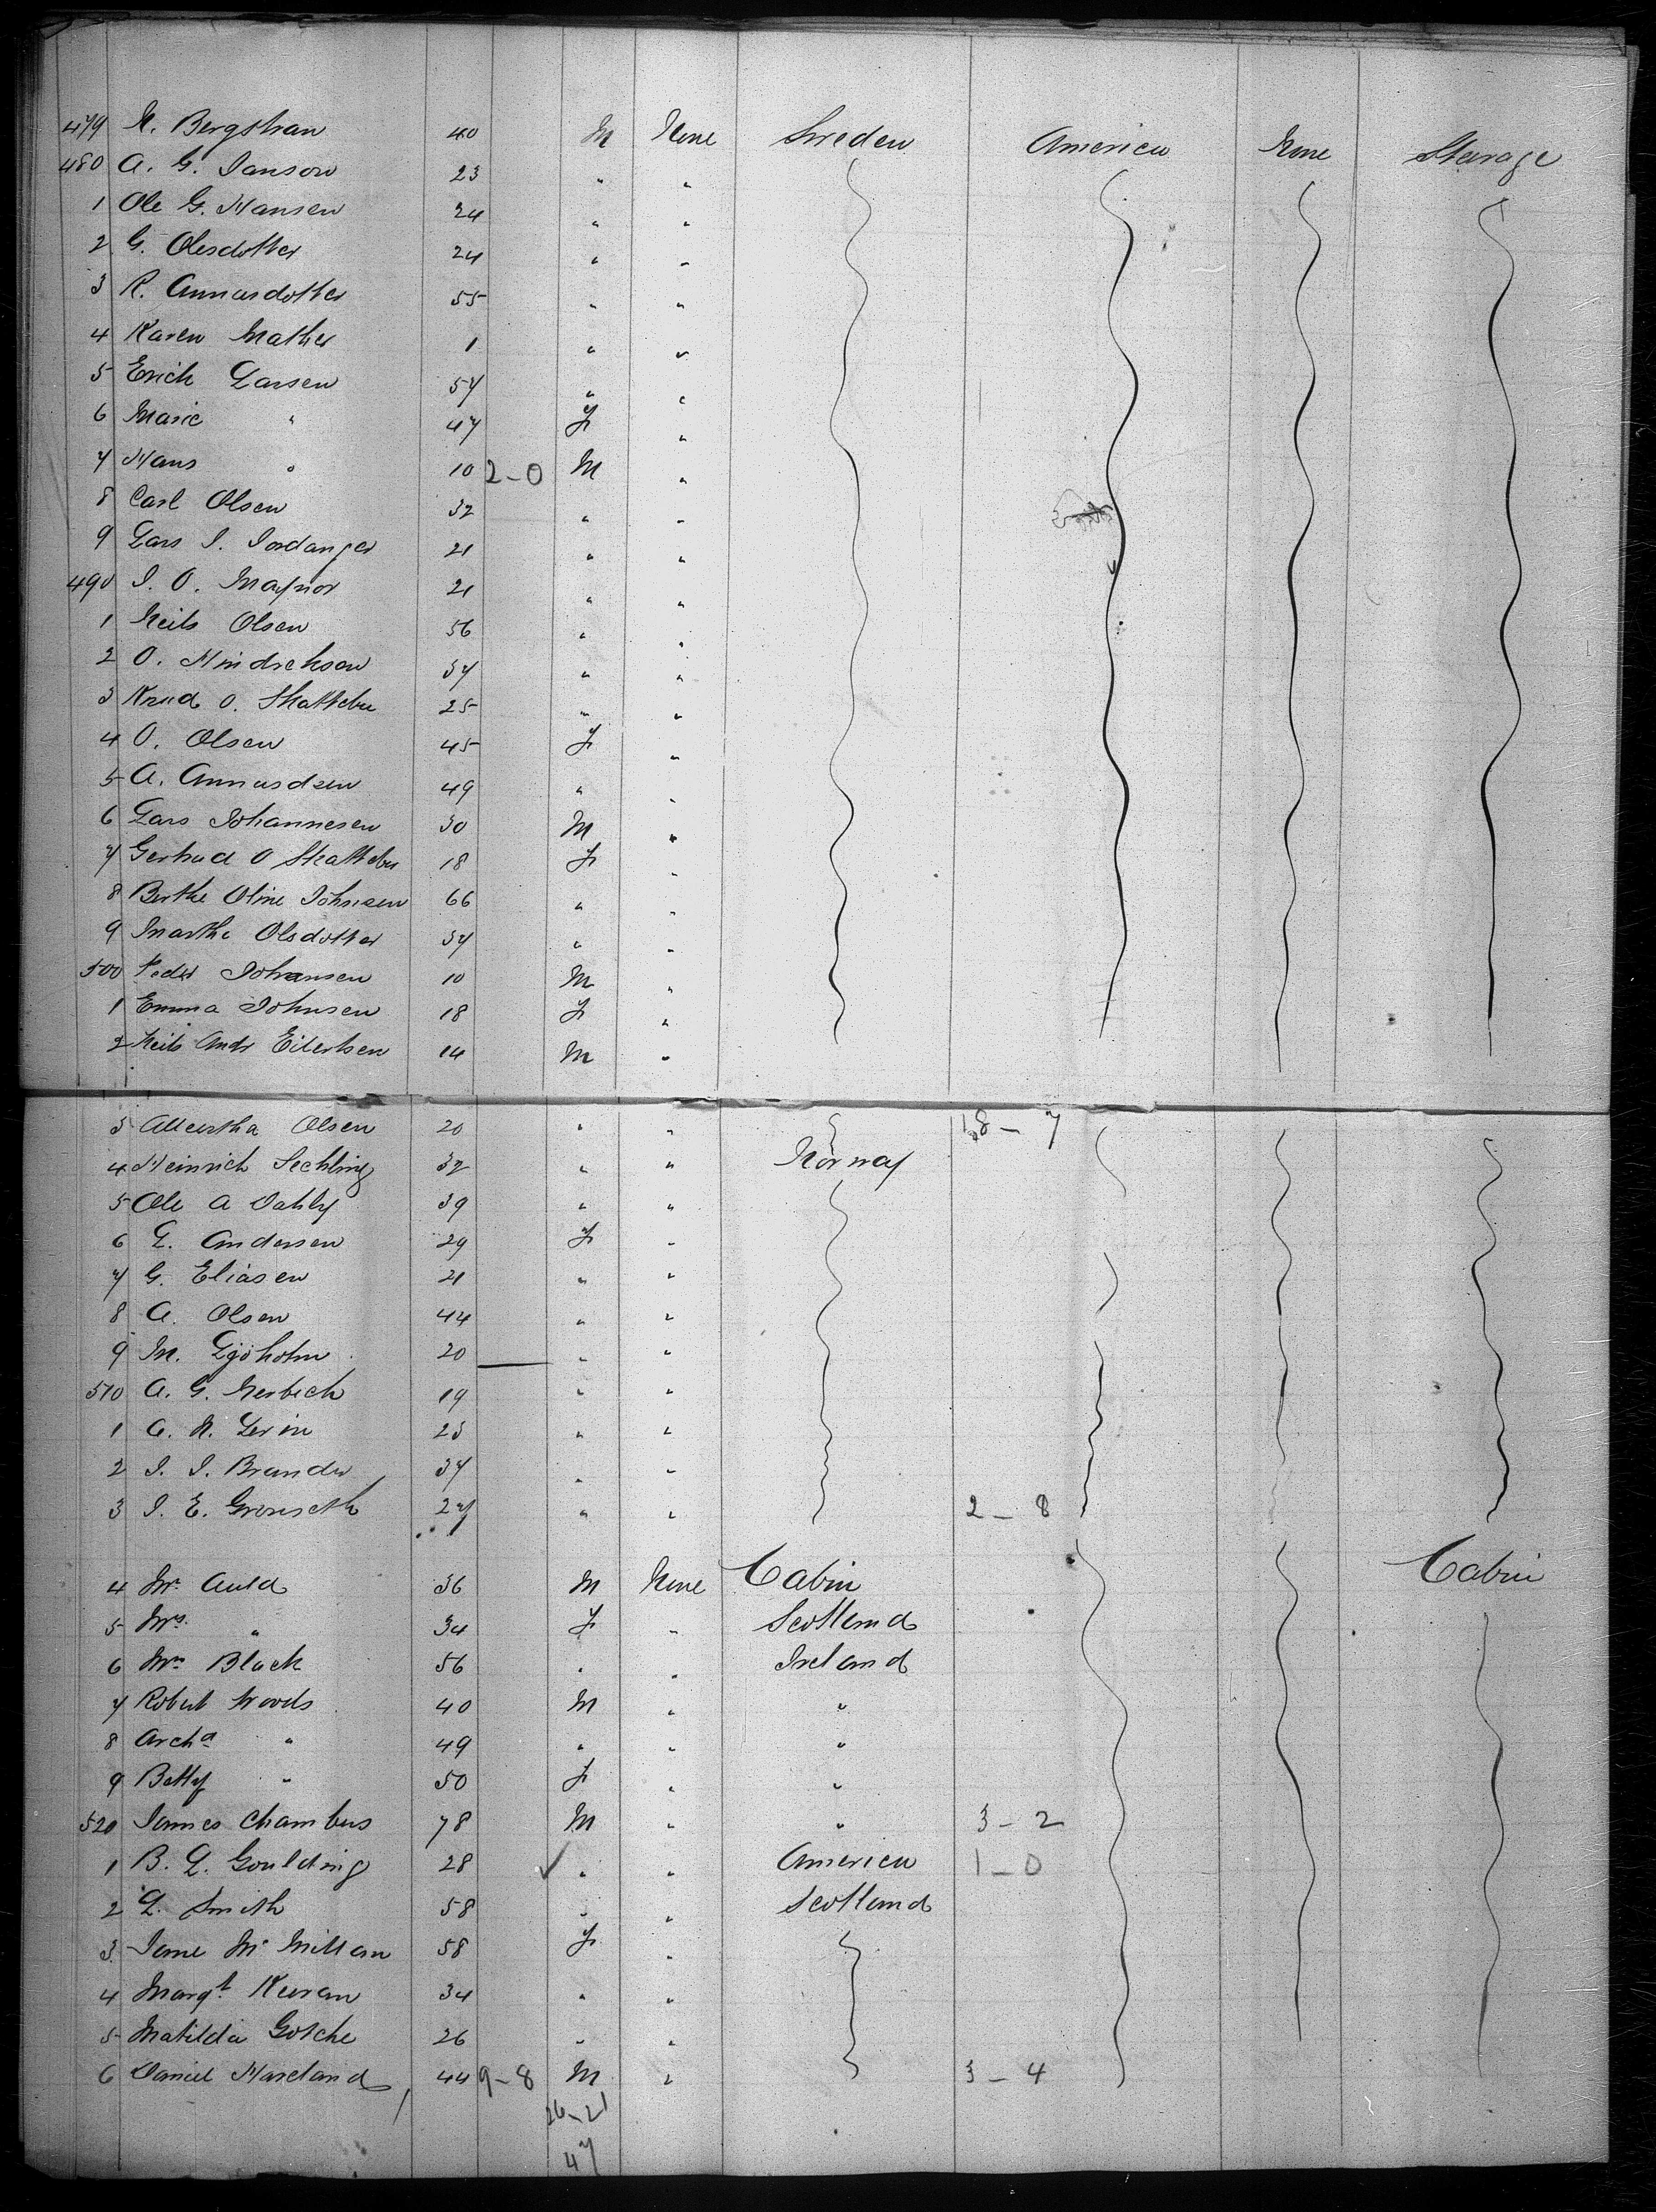 479 N. Bergstran 40 M None Sweden America None Sterage
480 A. G. Janson 23 " "
1 Ole G. Hansen 24 " "
2 G. Olesdotter 24 " "
3 R. Annasdotter 55 " "
4 Karen Mather 1 " "
5 Erich Larsen 57 " "
6 Marie " 47 F "
7 Hans " 10 2-0 M "
8 Carl Olsen 32 " "
9 Lars I. Jordanger 21 " "
490 I. O. Maynor 21 " "
1 Neils Olsen 56 " "
2 O. Hindrekson 37 " "
3 Knud O. Skattebu 25 " "
4 O. Olsen 45 F "
5 A. Annasdsen 49 " "
6 Lars Johannesen 30 M "
7 Gertrud O Skattebu 18 F "
8 Berthe Oline Johnsen 66 " "
9 Marthe Olsdotter 37 " "
500 Peder Johansen 10 M "
1 Emma Johnsen 18 F "
2 Neils Andr Eilertsen 14 M "
3 Olsen 20 " " 18-7
4 Heinrich Sechling 32 " " Norway
5 Ole A Dahly 39 " "
6 L. Andersen 29 F "
7 G. Eliasen 21 " "
8 A. Olsen 44 " "
9 M. 20 " "
510 A. G. Nerbech 19 " "
1 C. N. Levin 23 " "
2 I. I. Brandw 37 " "
3 I. E. Gronseth 27 " " 2-8
4 Mr. Auld 36 M None Cabin Cabin
5 Mrs. " 34 F " Scotland
6 Mrs Black 56 " " Ireland
7 Robert Woods 40 M " "
8 Archd " 49 " " "
9 Betty " 50 F " "
520 James Chambers 78 M " " 3-2
1 B. L. Goulding 28 ✓ " " America 1-0
2 L. Smith 58 " " Scotland
3 Jane McMillan 58 F "
4 Margt Kuran 34 " "
5 Matilda Gotche 26 " "
6 Daniel Hareland 44 9-8 M " 3-4
26-21
47